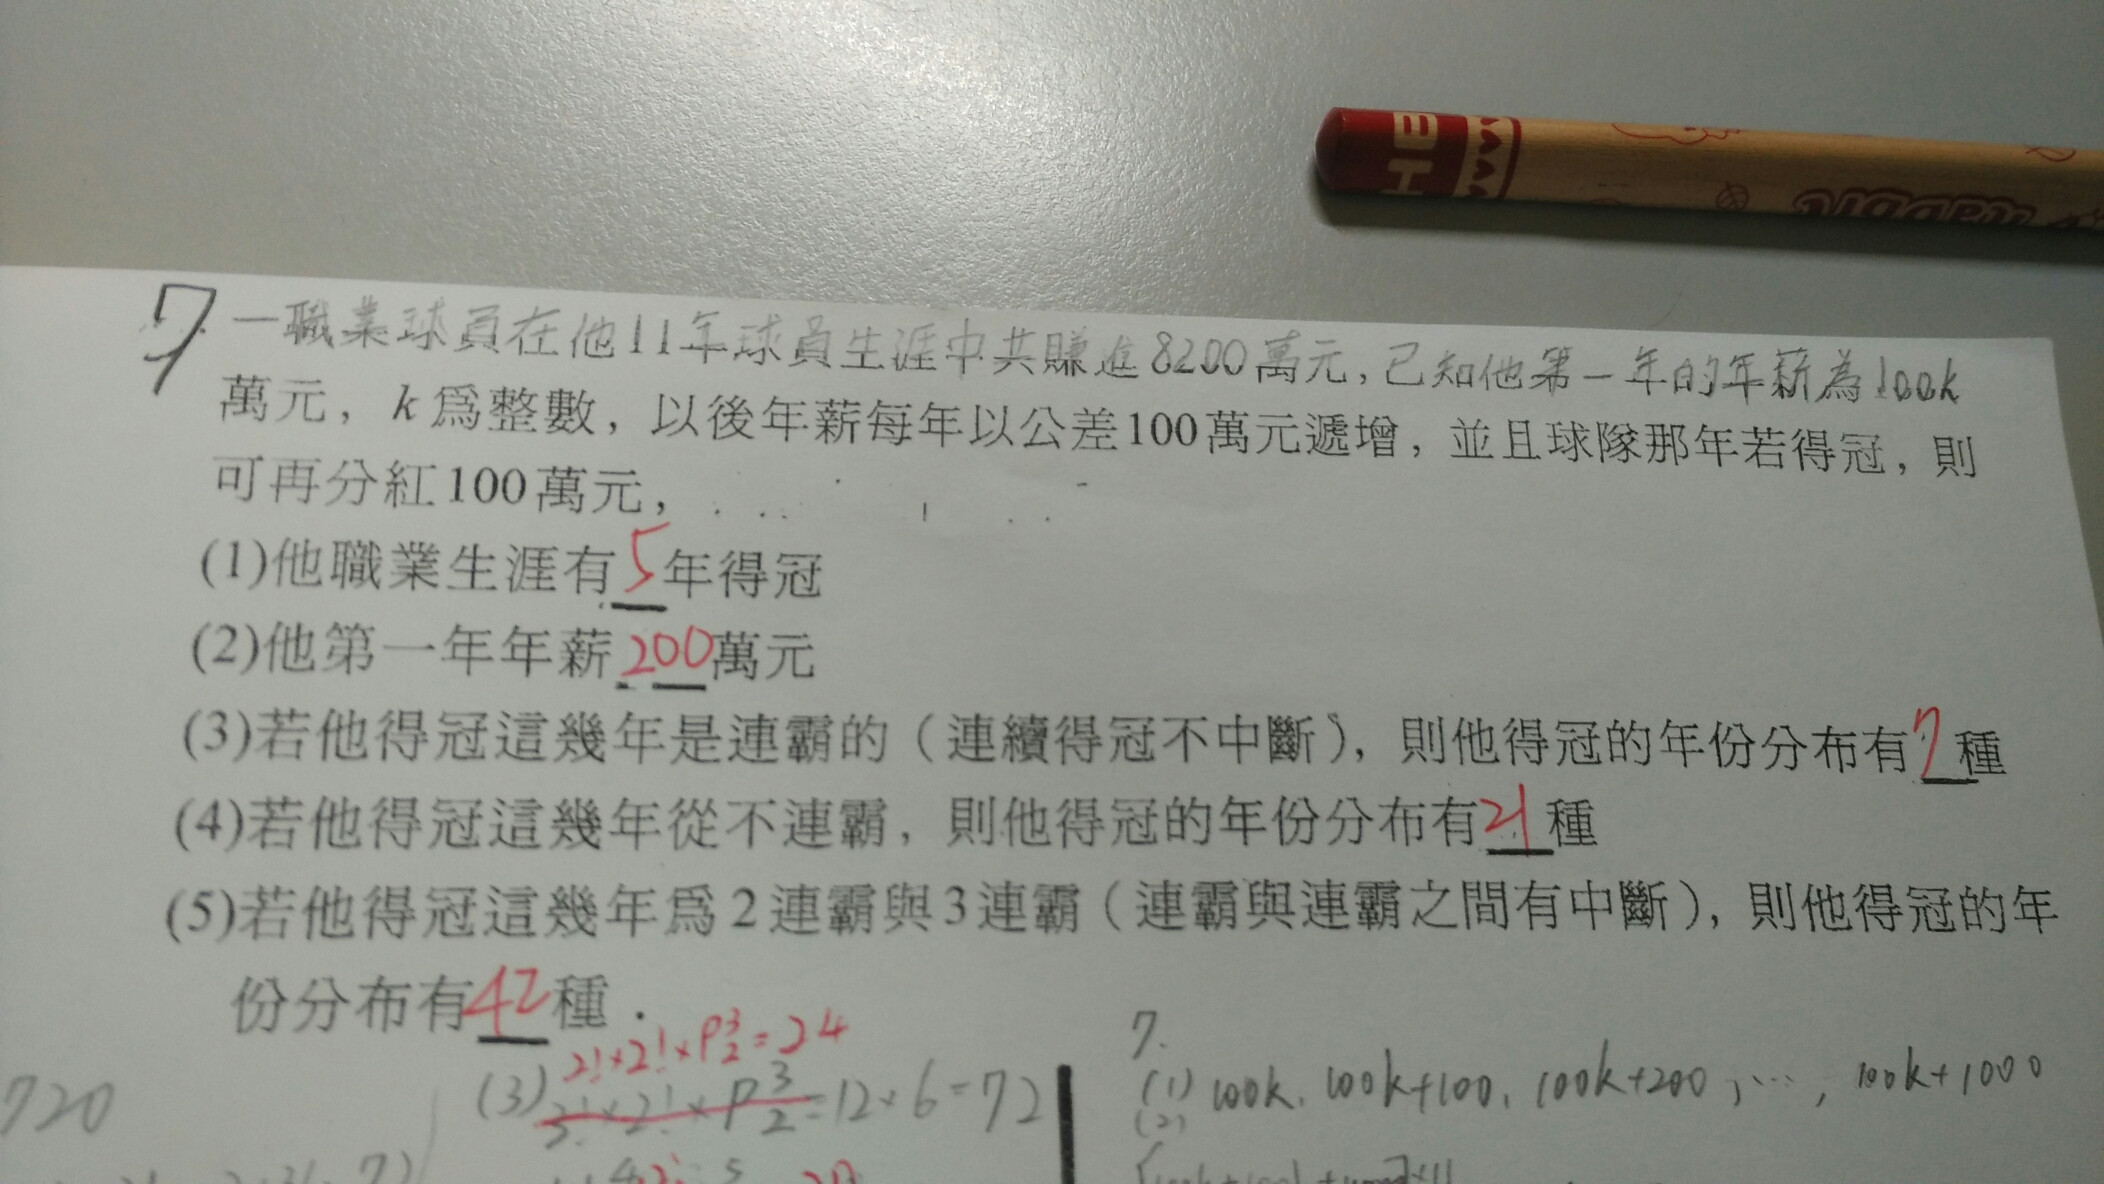 HB
7. 一職業球員在他11年球員生涯中共賺進8200萬元,已知他第一年的年薪為100k
萬元,k爲整數,以後年薪每年以公差100萬元遞增,並且球隊那年若得冠,則
可再分紅100萬元,
(1)他職業生涯有5年得冠
(2)他第一年年薪200萬元
(3)若他得冠這幾年是連霸的(連續得冠不中斷),則他得冠的年份分布有7種
(4)若他得冠這幾年從不連霸,則他得冠的年份分布有21種
(5)若他得冠這幾年爲2連霸與3連霸(連霸與連霸之間有中斷),則他得冠的年
份分布有42種.
2!×2!×P³₂=24
(3) 2!×2!×P³₂=12×6=72
720
7.
(1) 100k, 100k+100, 100k+200, ..., 100k+1000
(2)